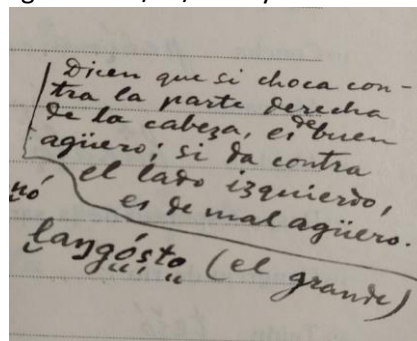 Dicen que si choca con-
tra la parte derecha
de la cabeza, es de buen
agüero; si da contra
el lado izquierdo,
es de mal agüero.
nó
langósto (el grande)